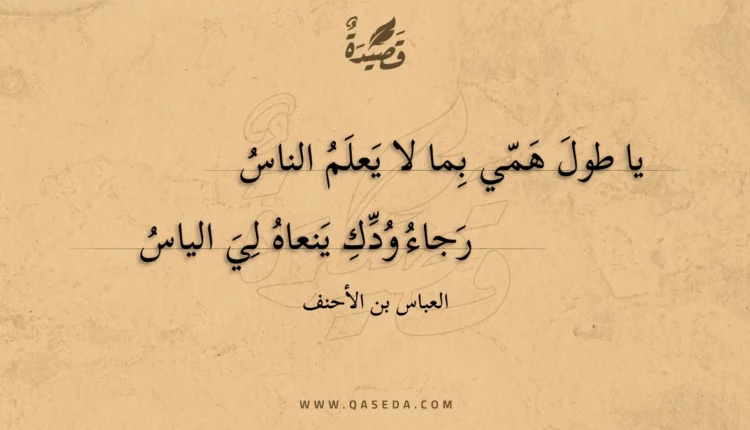 قَصِيدَةٌ
يا طولَ هَمّي بِما لا يَعلَمُ الناسُ
رَجاءُ وُدِّكِ يَنعاهُ لِيَ الياسُ
العباس بن الأحنف
WWW.QASEDA.COM